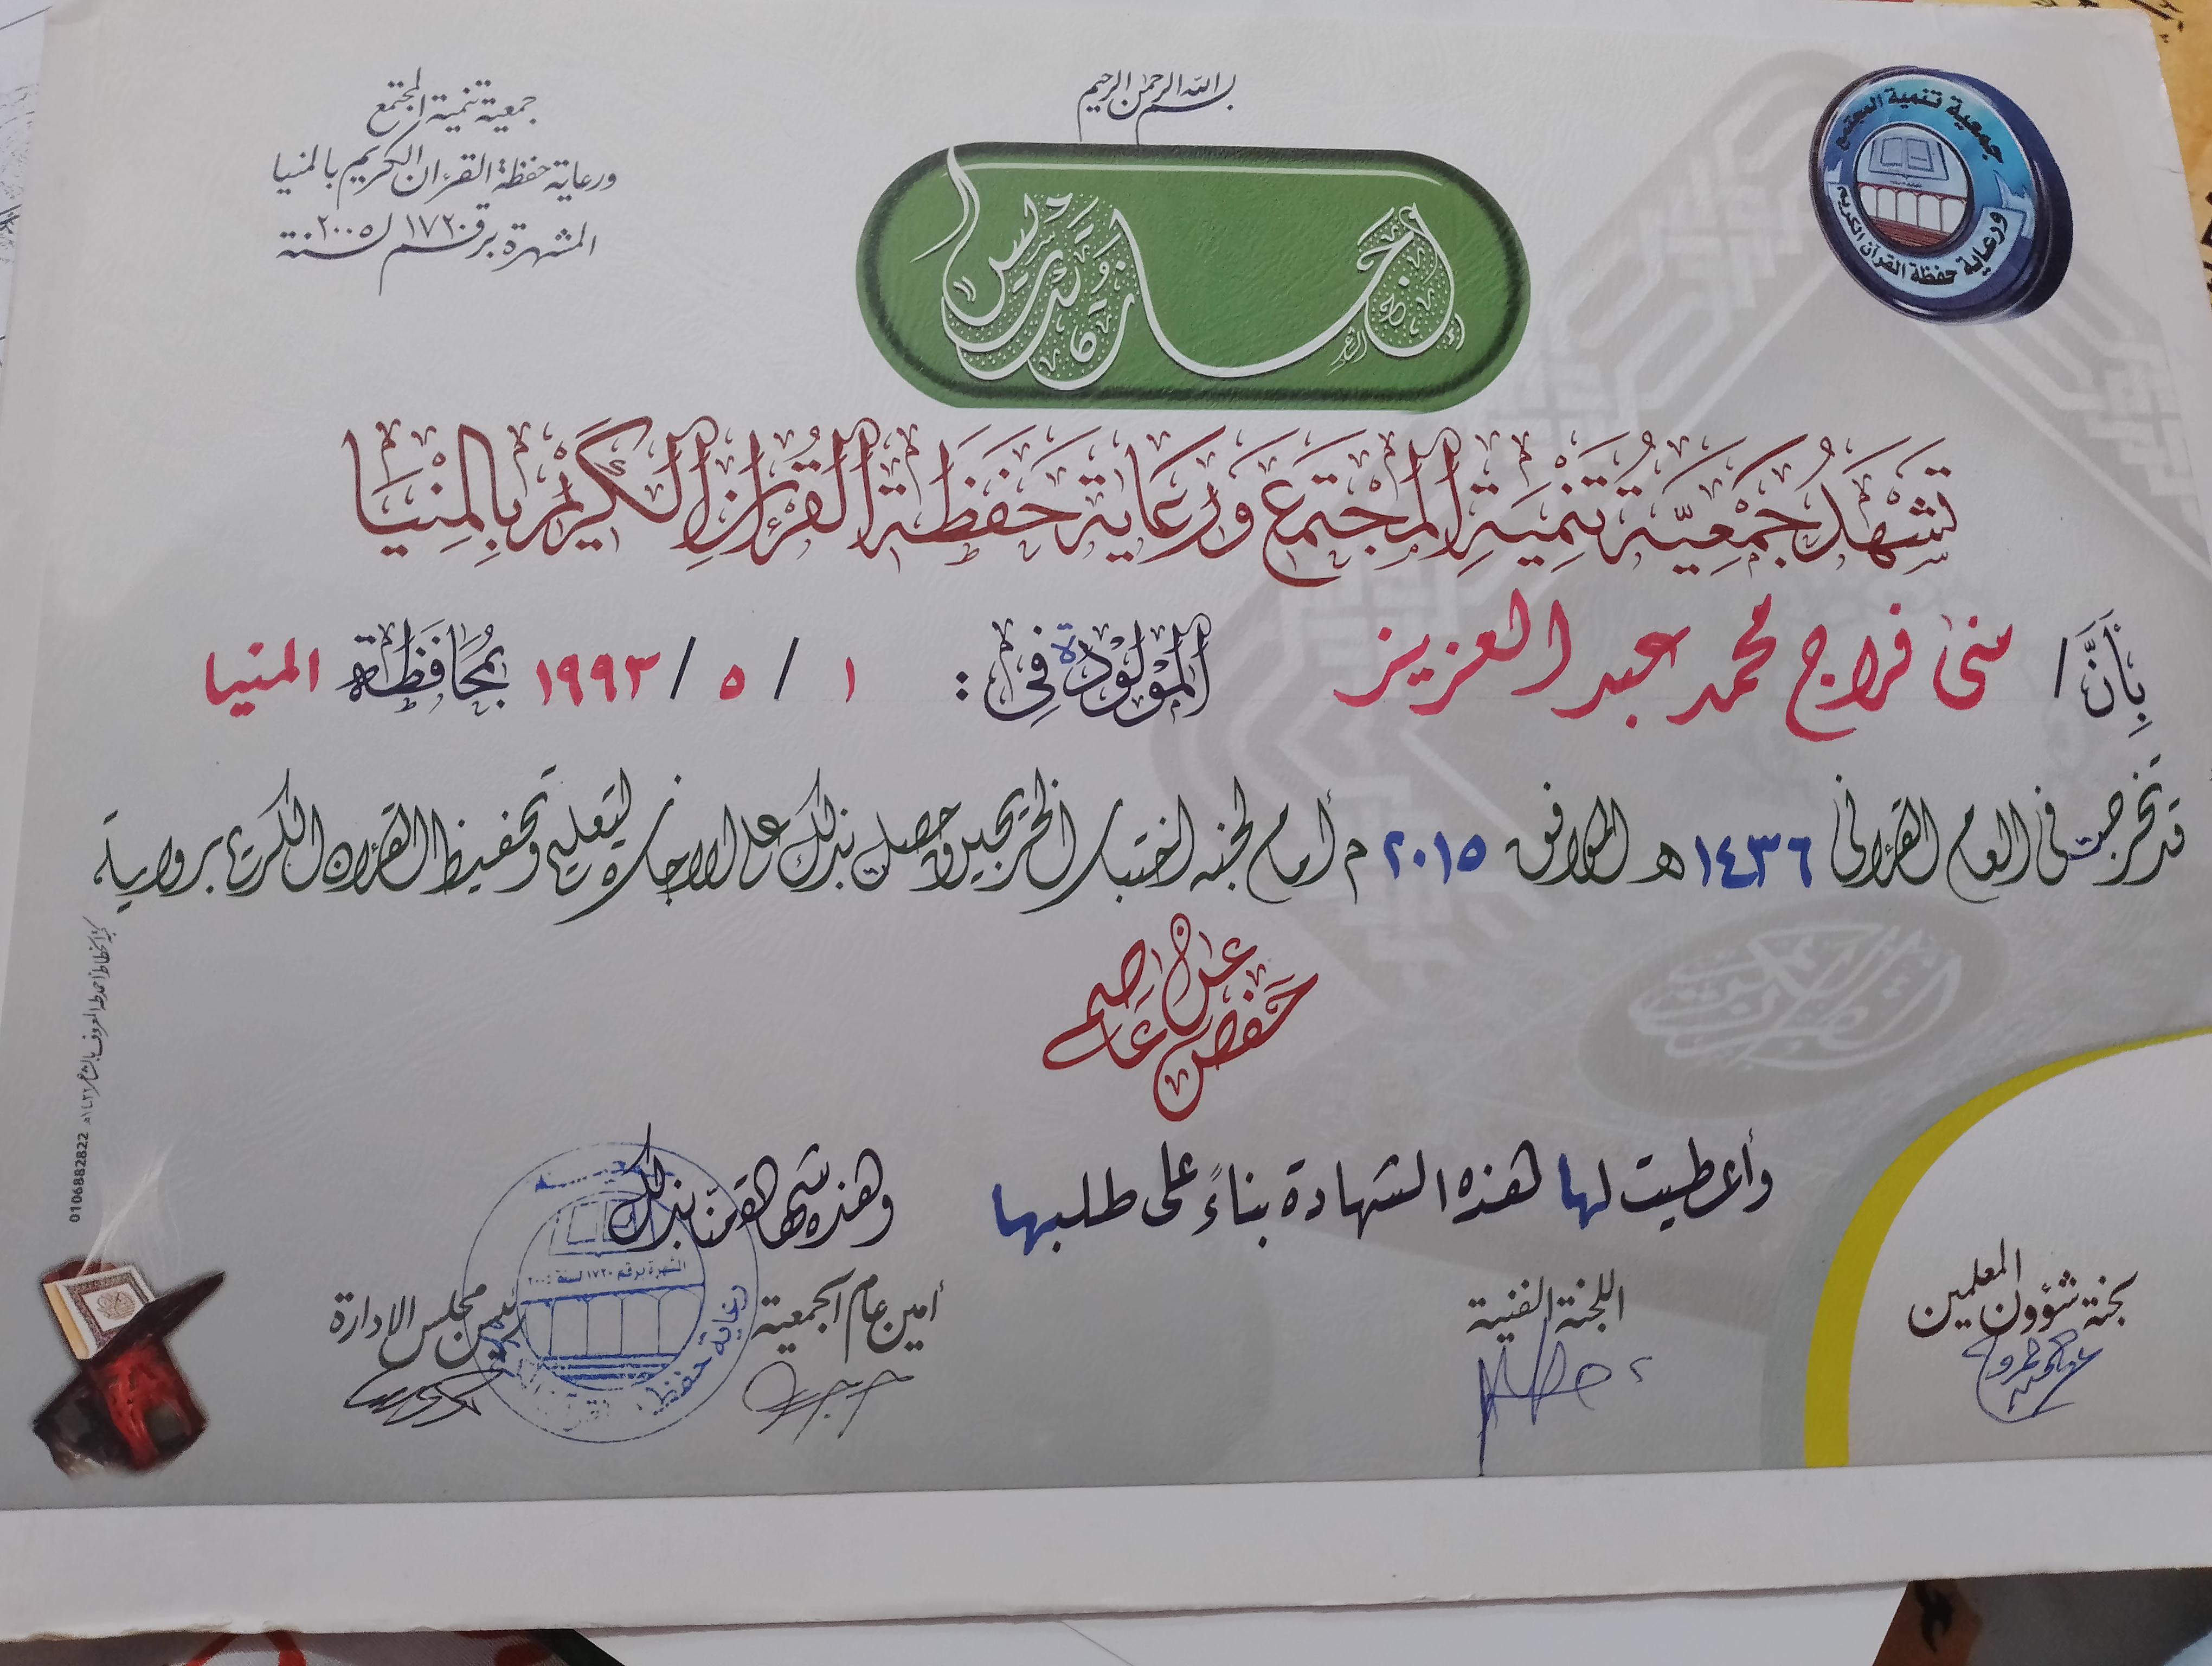 بسم الله الرحمن الرحيم
جمعية تنمية المجتمع
ورعاية حفظة القرءان الكريم بالمنيا
المشهرة برقم ١٧٢٠ لسنة ٢٠٠٥
جمعية تنمية المجتمع
ورعاية حفظة القرآن الكريم
إجازة تدريس
تَشْهَدُ جَمْعِيَّة تَنْمِيَةِ المُجْتَمَع وَرِعَايَة حَفَظَة القُرْءانِ الكَرِيْمْ بِالمِنْيَا
بِأَنَّ / منى فراج محمد عبد العزيز المَوْلُودة فِى : ١ / ٥ / ١٩٩٣ بمُحَافَظَة المنيا
قد تخرجت فى العام القرءانى ١٤٣٦ هـ الموافق ٢٠١٥ م أمام لجنه اختبار الخريجين وحصلت بذلك على الاجازه لتعليم وتحفيظ القرءان الكريم برواية
حفص عن عاصم
القرآن الكريم
وأعطيت لها هذه الشهادة بناءً على طلبها
وهذه شهادة منّا بذلك
لجنة شؤون المعلمين
اللجنة الفنية
أمين عام الجمعية
رئيس مجلس الإدارة
المشهرة برقم ١٧٢٠ لسنة ٢٠٠٥
رعاية حفظة
0106882822